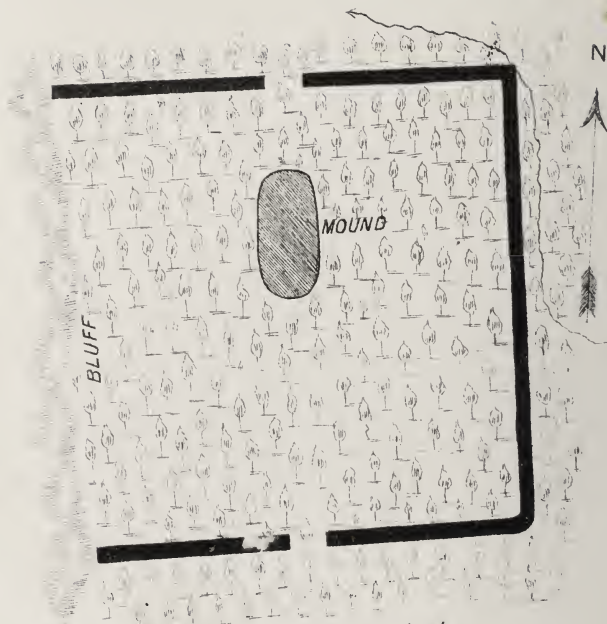 N
MOUND
BLUFF